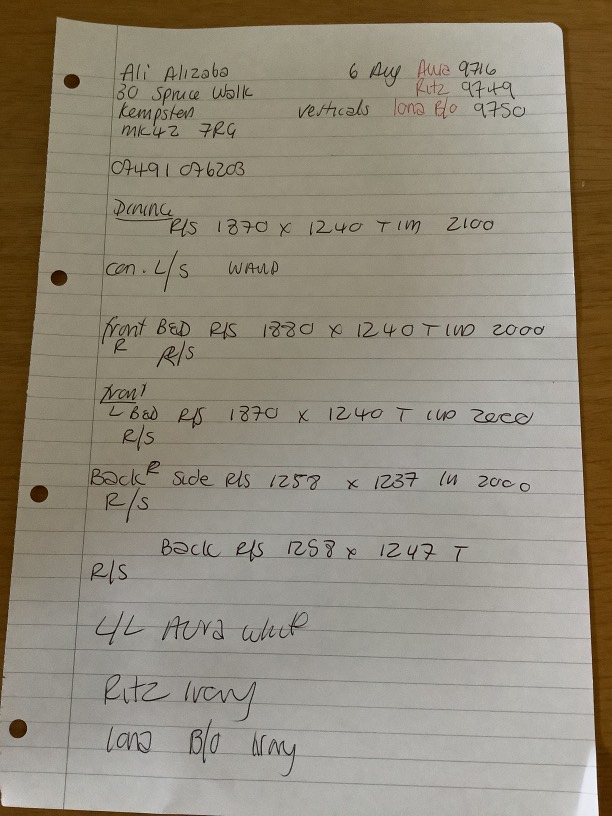 Ali Alizaba 6 Aug Aura 9716
30 Spruce Walk Ritz 9749
Kempsten verticals Iona B/o 9750
MK42 7RG
07491 076203
Dining
R/S 1870 x 1240 T IM 2100
con. L/S WAND
front BED R/S 1880 x 1240 T 2000
R R/S
front
L BED R/S 1870 x 1240 T 2000
R/S
Back R side R/S 1258 x 1237 2000
R/S
Back R/S 1258 x 1247 T
R/S
L/L Aura White
Ritz Ivory
Iona B/o Ivory